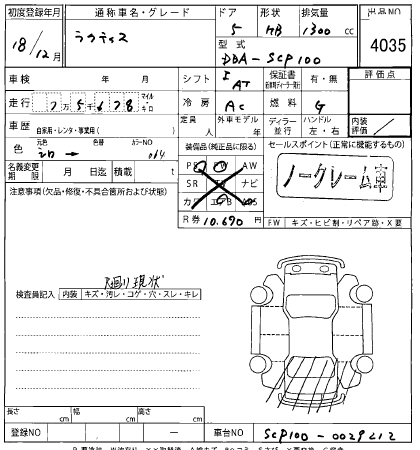 初度登録年月 通称車名・グレード ドア 形状 排気量 出品NO
18/12月 ラクティス 5 HB 1300 cc 4035
型式 DBA-SCP100
車検 年 月 シフト I AT 保証書 有・無 評価点
走行 7万5千678 マイル・キロ 冷房 AC 燃料 G
車歴 自家用・レンタ・事業用( ) 定員 人 外車モデル 年 ディーラー・並行 ハンドル 左・右 内装評価
色 元色 → 色替 カラーNO 064 装備品(純正品に限る) セールスポイント(正常に機能するもの)
名義変更期限 月 日迄 積載 t PS PW AW
注意事項(欠品・修復・不具合箇所および状態) SR ナビ
ノークレーム車
カワ
R券 10,690円 FW キズ・ヒビ割・リペア跡・X要
現状
検査員記入 内装 キズ・汚レ・コゲ・穴・スレ・キレ
長さ cm 幅 cm 高さ cm
登録NO - 車台NO SCP100-0029212